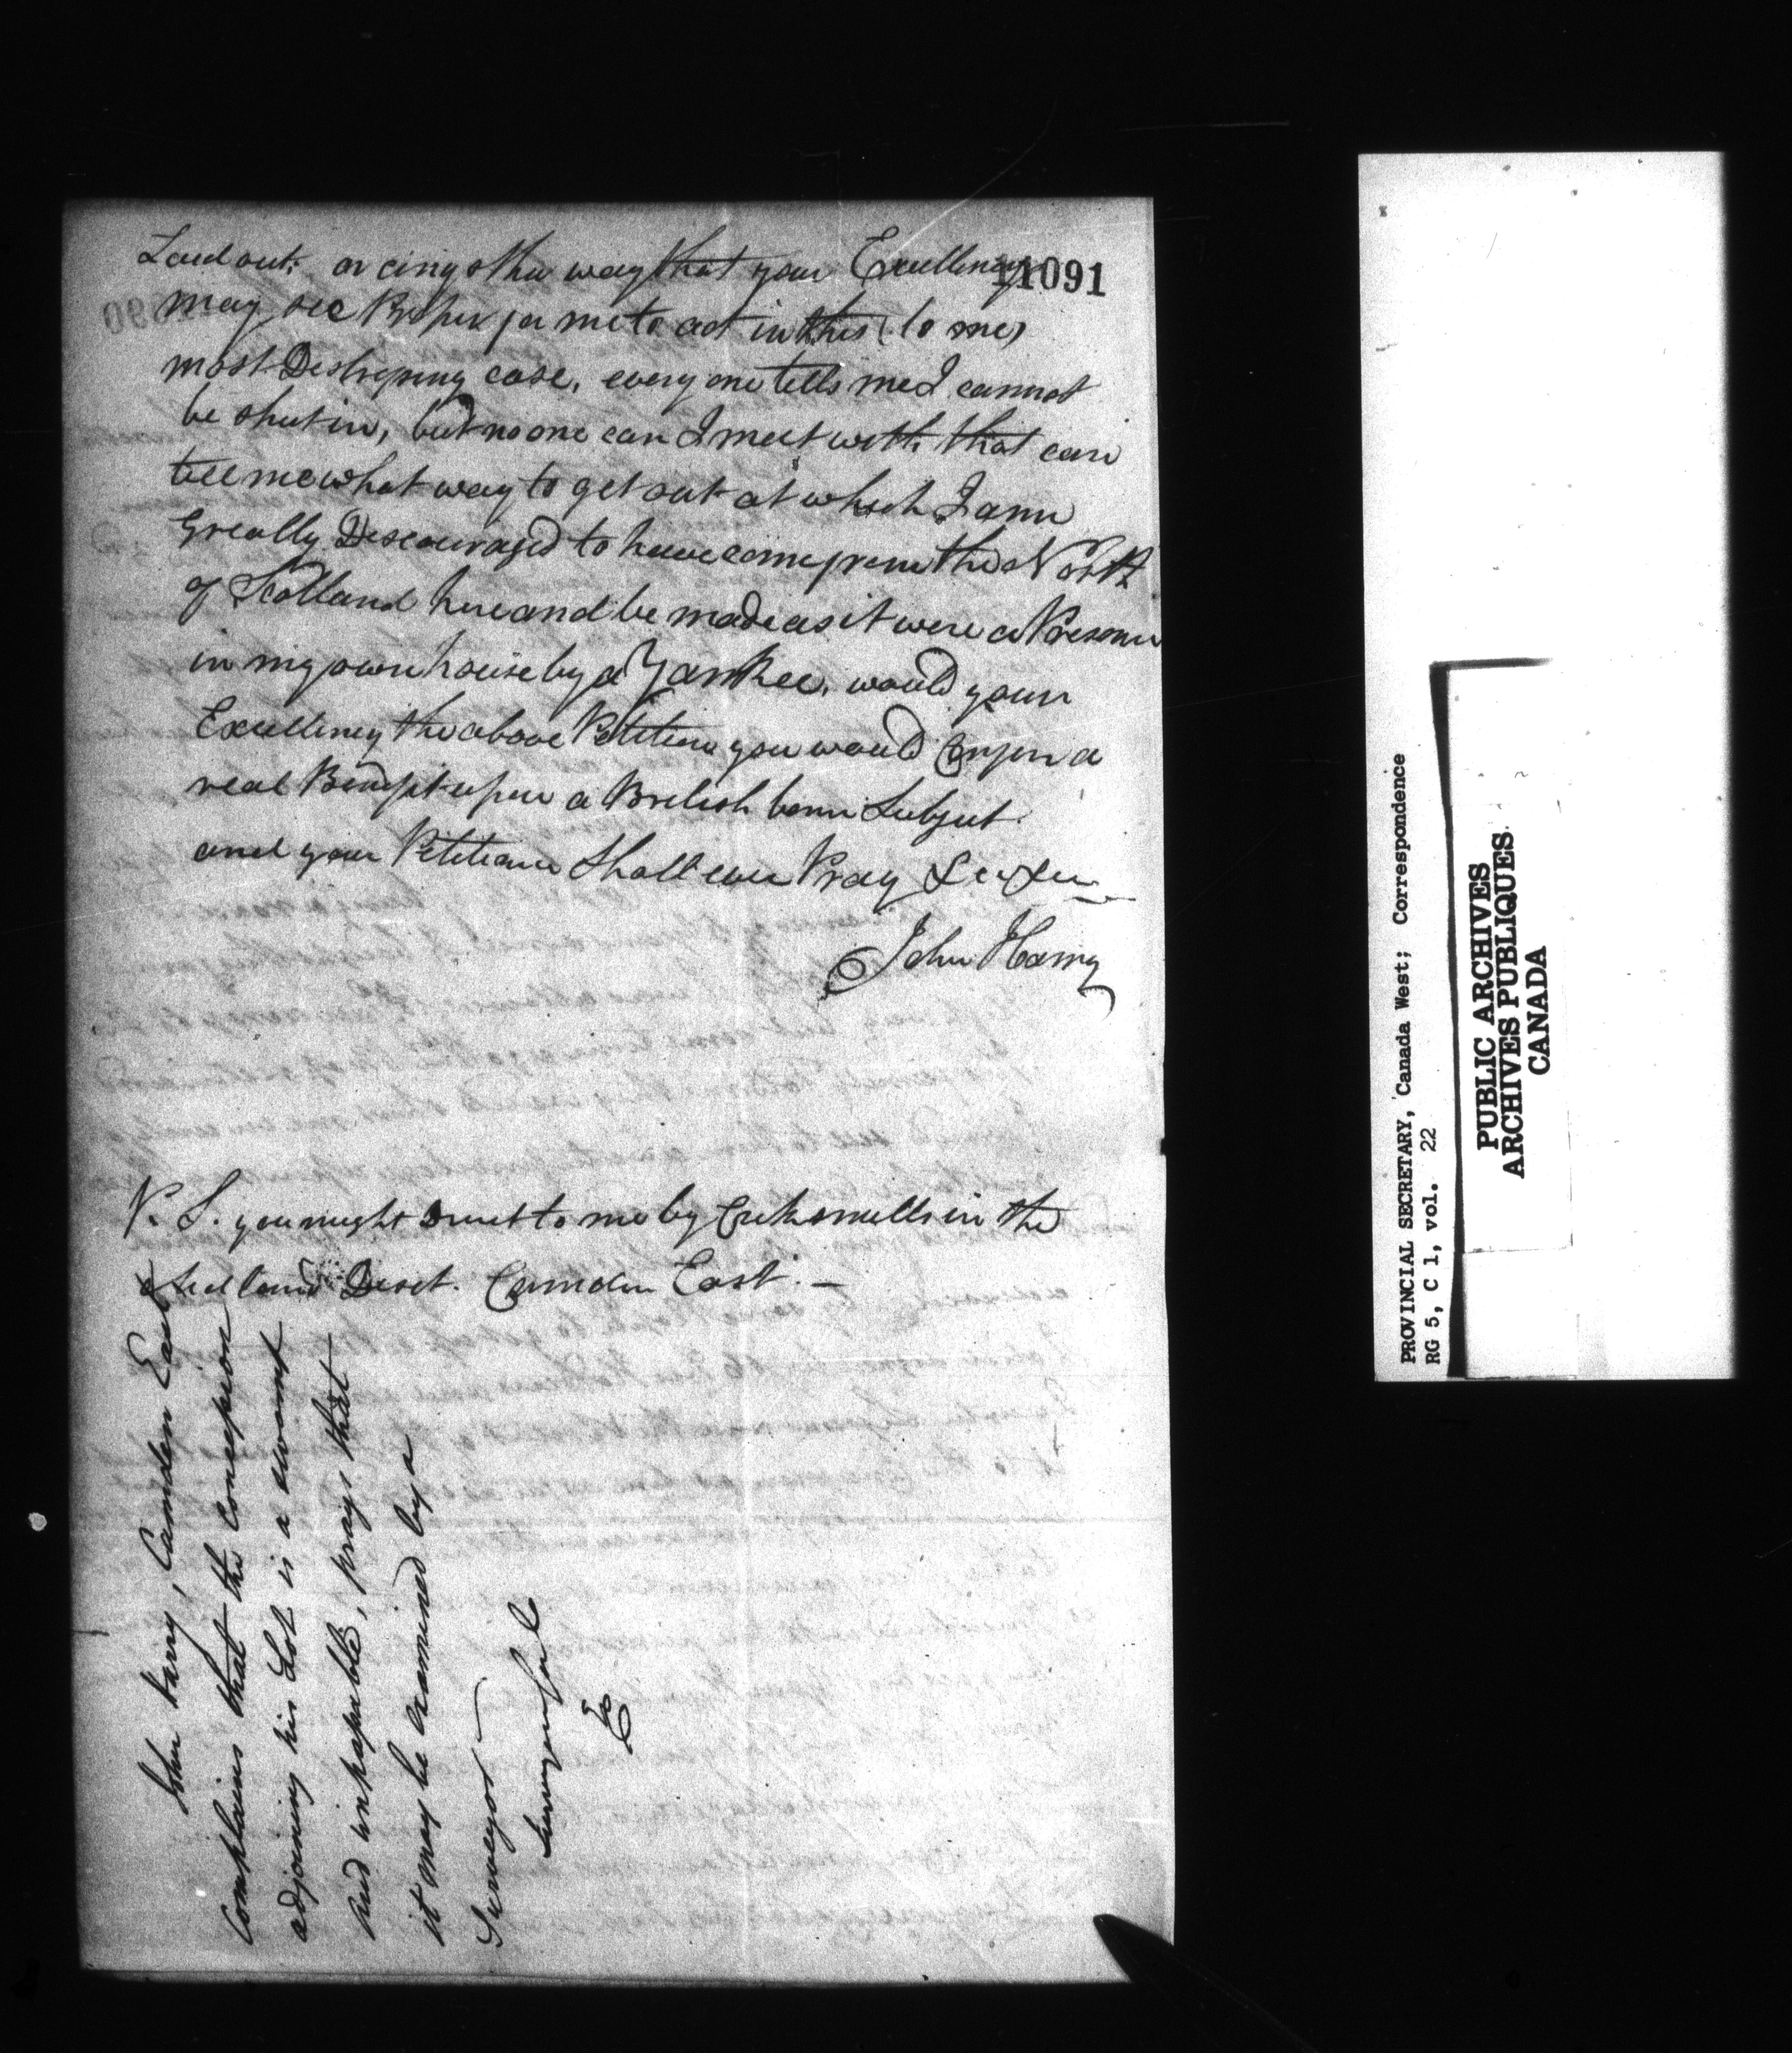 Laid out; or any other way that your Excellency
11091
may see Proper for me to act in this (to me)
most Distressing case, every one tells me I cannot
be shut in, but no one can I meet with that can
tell me what way to get out at which I am
Greatly Discouraged to have come from the North
of Scotland here and be made as it were a Presoner
in my own house by a Yankee, would your
Excellency the above Petition you would Confer a
real Benefit upon a British born Subject.
and your Petitioner Shall ever Pray
John Harvy
P. S. you might direct to me by Clarks mills in the
Midland Dist. Camden East. —
John Harvy, Camden East
Complains that the Concession
adjoining his Lot is a swamp
and impassable, prays that
it may be examined by a
Surveyor
Surveyor Genl
PROVINCIAL SECRETARY, Canada West; Correspondence
RG 5, C 1, vol. 22
PUBLIC ARCHIVES
ARCHIVES PUBLIQUES
CANADA